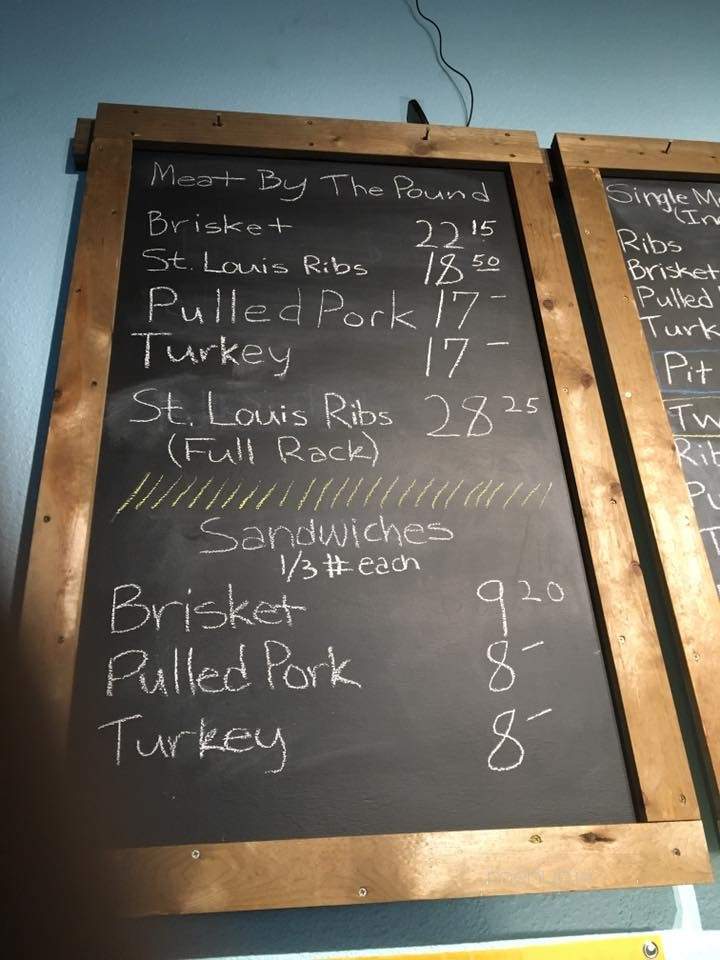 Meat By The Pound
Brisket 22 15
St. Louis Ribs 18 50
Pulled Pork 17 -
Turkey 17 -
St. Louis Ribs 28 25
(Full Rack)
Sandwiches
1/3 # each
Brisket 9 20
Pulled Pork 8 -
Turkey 8 -
Single
Ribs
Brisket
Pulled
Pit